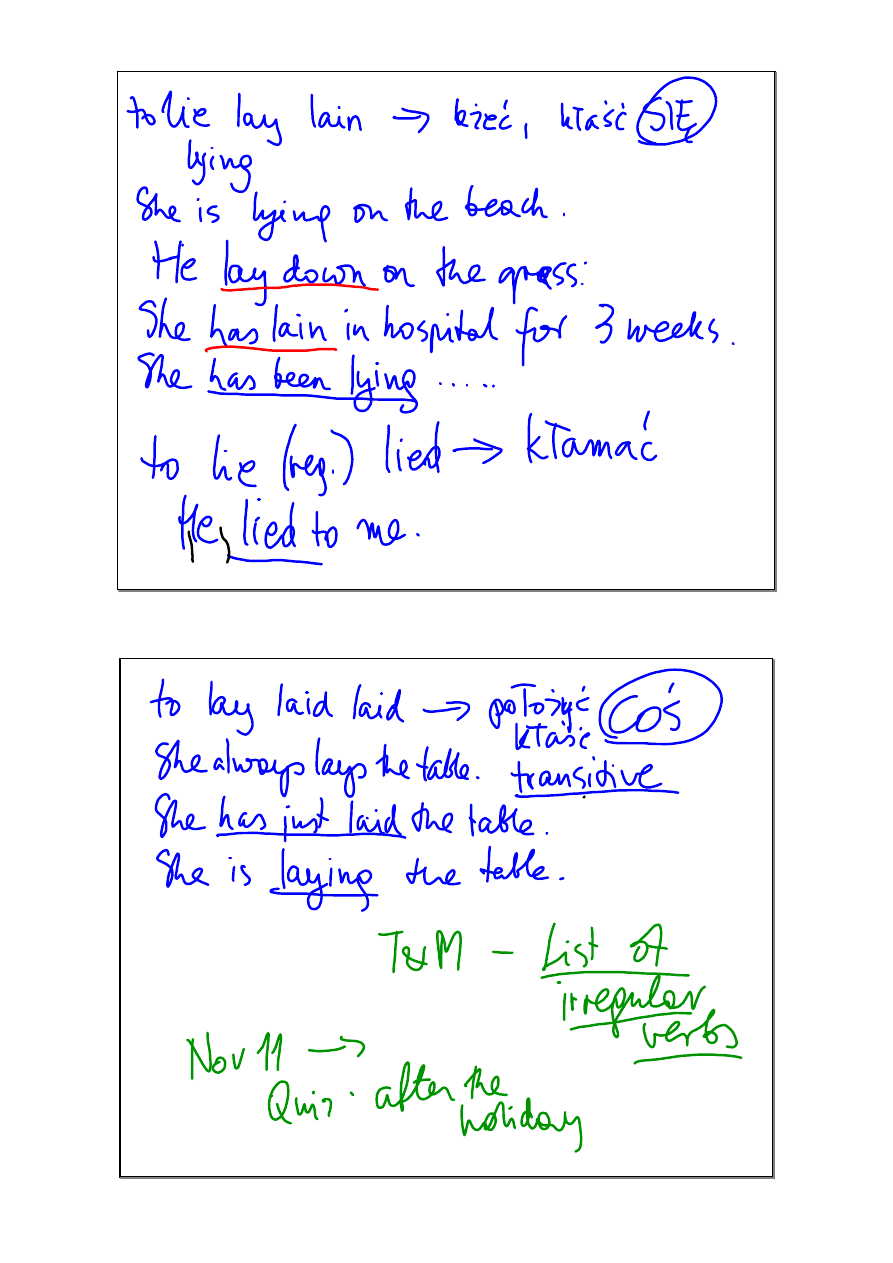 to lie lay lain → leżeć, kłaść SIĘ
lying
She is lying on the beach.
He lay down on the grass.
She has lain in hospital for 3 weeks.
She has been lying .....
to lie (reg.) lied → kłamać
He lied to me.
to lay laid laid → położyć COŚ
kłaść
She always lays the table. transitive
She has just laid the table.
She is laying the table.
T&M – List of
irregular
verbs
Nov 11 →
Quiz. after the
holiday